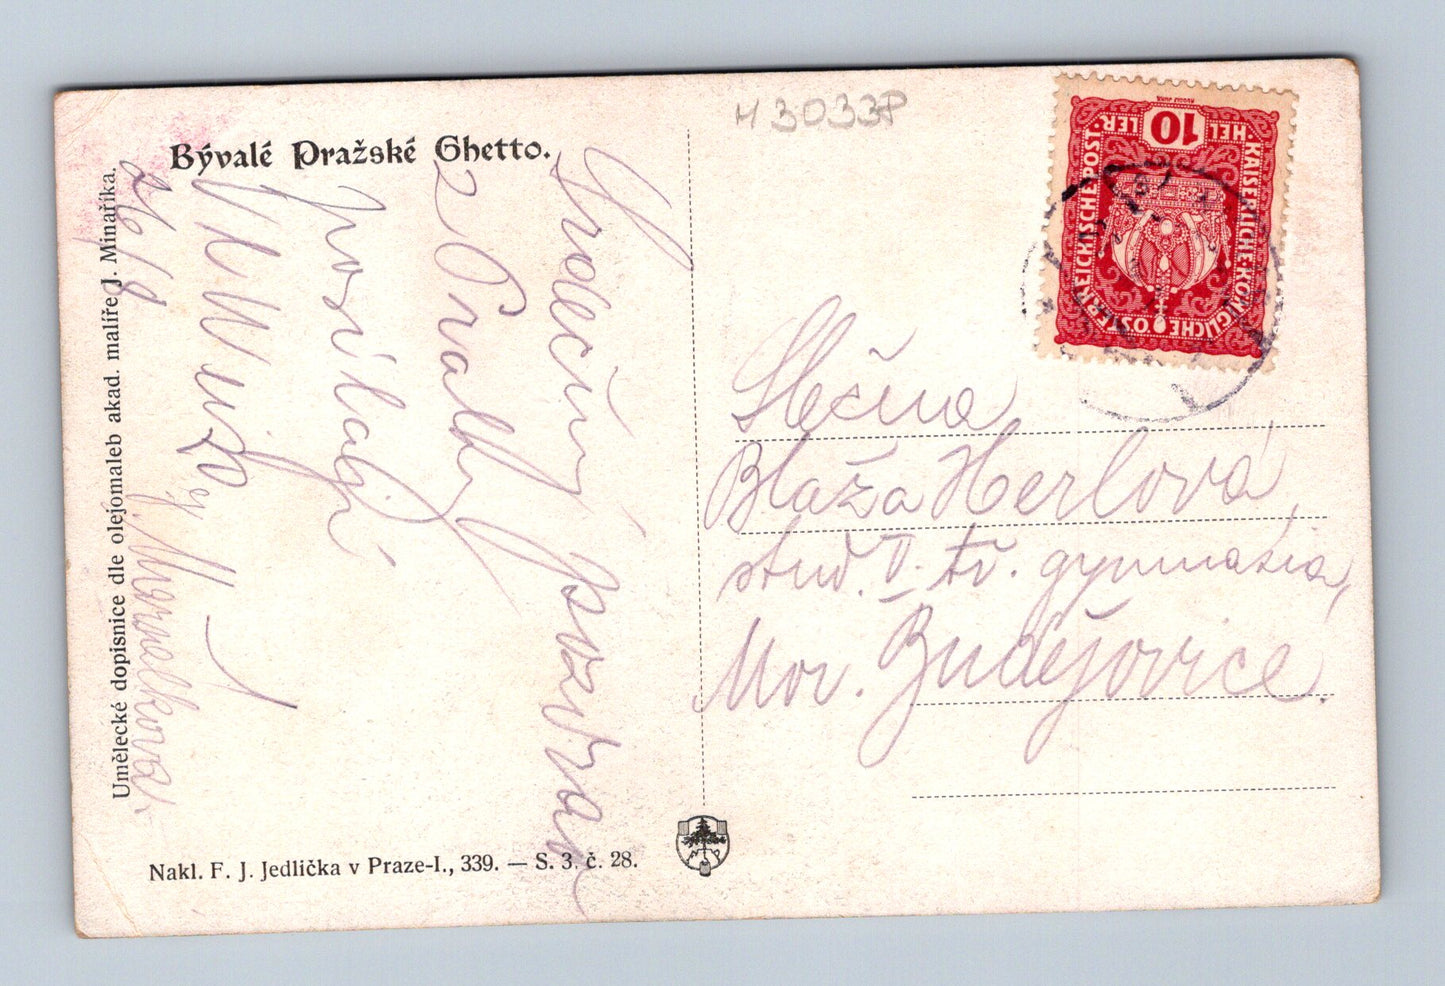 H3033P
Bývalé Pražské Ghetto.
Umělecké dopisnice dle olejomaleb akad. malíře J. Minaříka.
Srdečný pozdrav
z Prahy
posílají
Morávkova
26/8
Nakl. F. J. Jedlička v Praze-I., 339. — S. 3. č. 28.
KAISERLICHE·KÖNIGLICHE ÖSTERREICHISCHE POST·
HEL 10 LER
Slečna
Blaža Herlová,
stud. II. tř. gymnasia,
Mor. Budějovice.